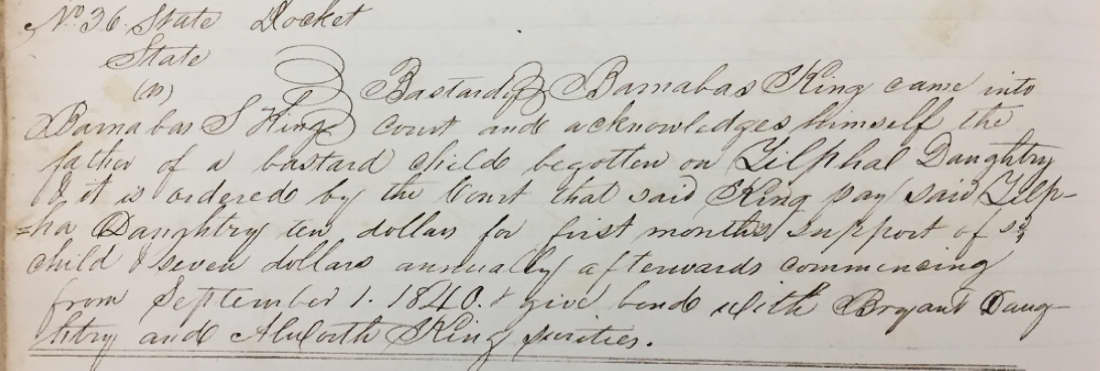 No. 36. State Docket
State
(vs)
Bastardy Barnabas King came into
Barnabas S King court and acknowledges himself the
father of a bastard child begotten on Zilphal Daughtry
& it is ordered by the Court that said King pay said Zilp-
=ha Daughtry ten dollars for first months support of sd
child & seven dollars annually afterwards commencing
from September 1. 1840. & give bond with Bryant Daug-
htry and King surities.